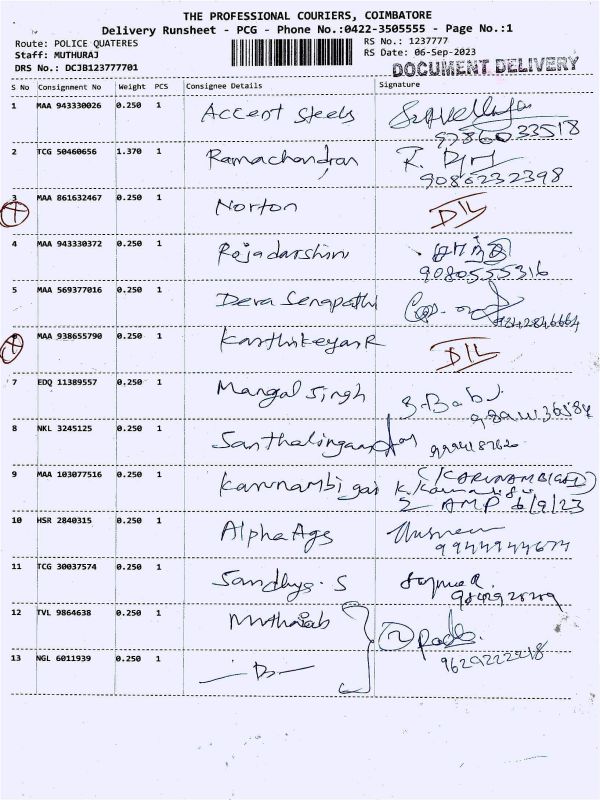 THE PROFESSIONAL COURIERS, COIMBATORE
Delivery Runsheet - PCG - Phone No.:0422-3505555 - Page No.:1
Route: POLICE QUATERES RS No.: 1237777
Staff: MUTHURAJ RS Date: 06-Sep-2023
DRS No.: DCJB123777701 DOCUMENT DELIVERY
S No Consignment No Weight PCS Consignee Details Signature
1 MAA 943330026 0.250 1 Accent Steels
9786033518
2 TCG 50460656 1.370 1 Ramachandran R.
9086232398
3 MAA 861632467 0.250 1 Norton DIL
4 MAA 943330372 0.250 1 Rojadarshini
9080555316
5 MAA 569377016 0.250 1 Deva Senapathi
9342846664
6 MAA 938655790 0.250 1 Karthikeyan R DIL
7 EDQ 11389557 0,250 1 Mangal Singh S. Babu
8 NKL 3245125 0.250 1 Santhalingam
9 MAA 103077516 0.250 1 Karunambigai (KARUNAMBIGAI)
2 AMP 6/9/23
10 HSR 2840315 0.250 1 Alpha Ags
9944944674
11 TCG 30037574 0.250 1 Sandhya. S
12 TVL 9864638 0.250 1
13 NGL 6011939 0.250 1 9629222218